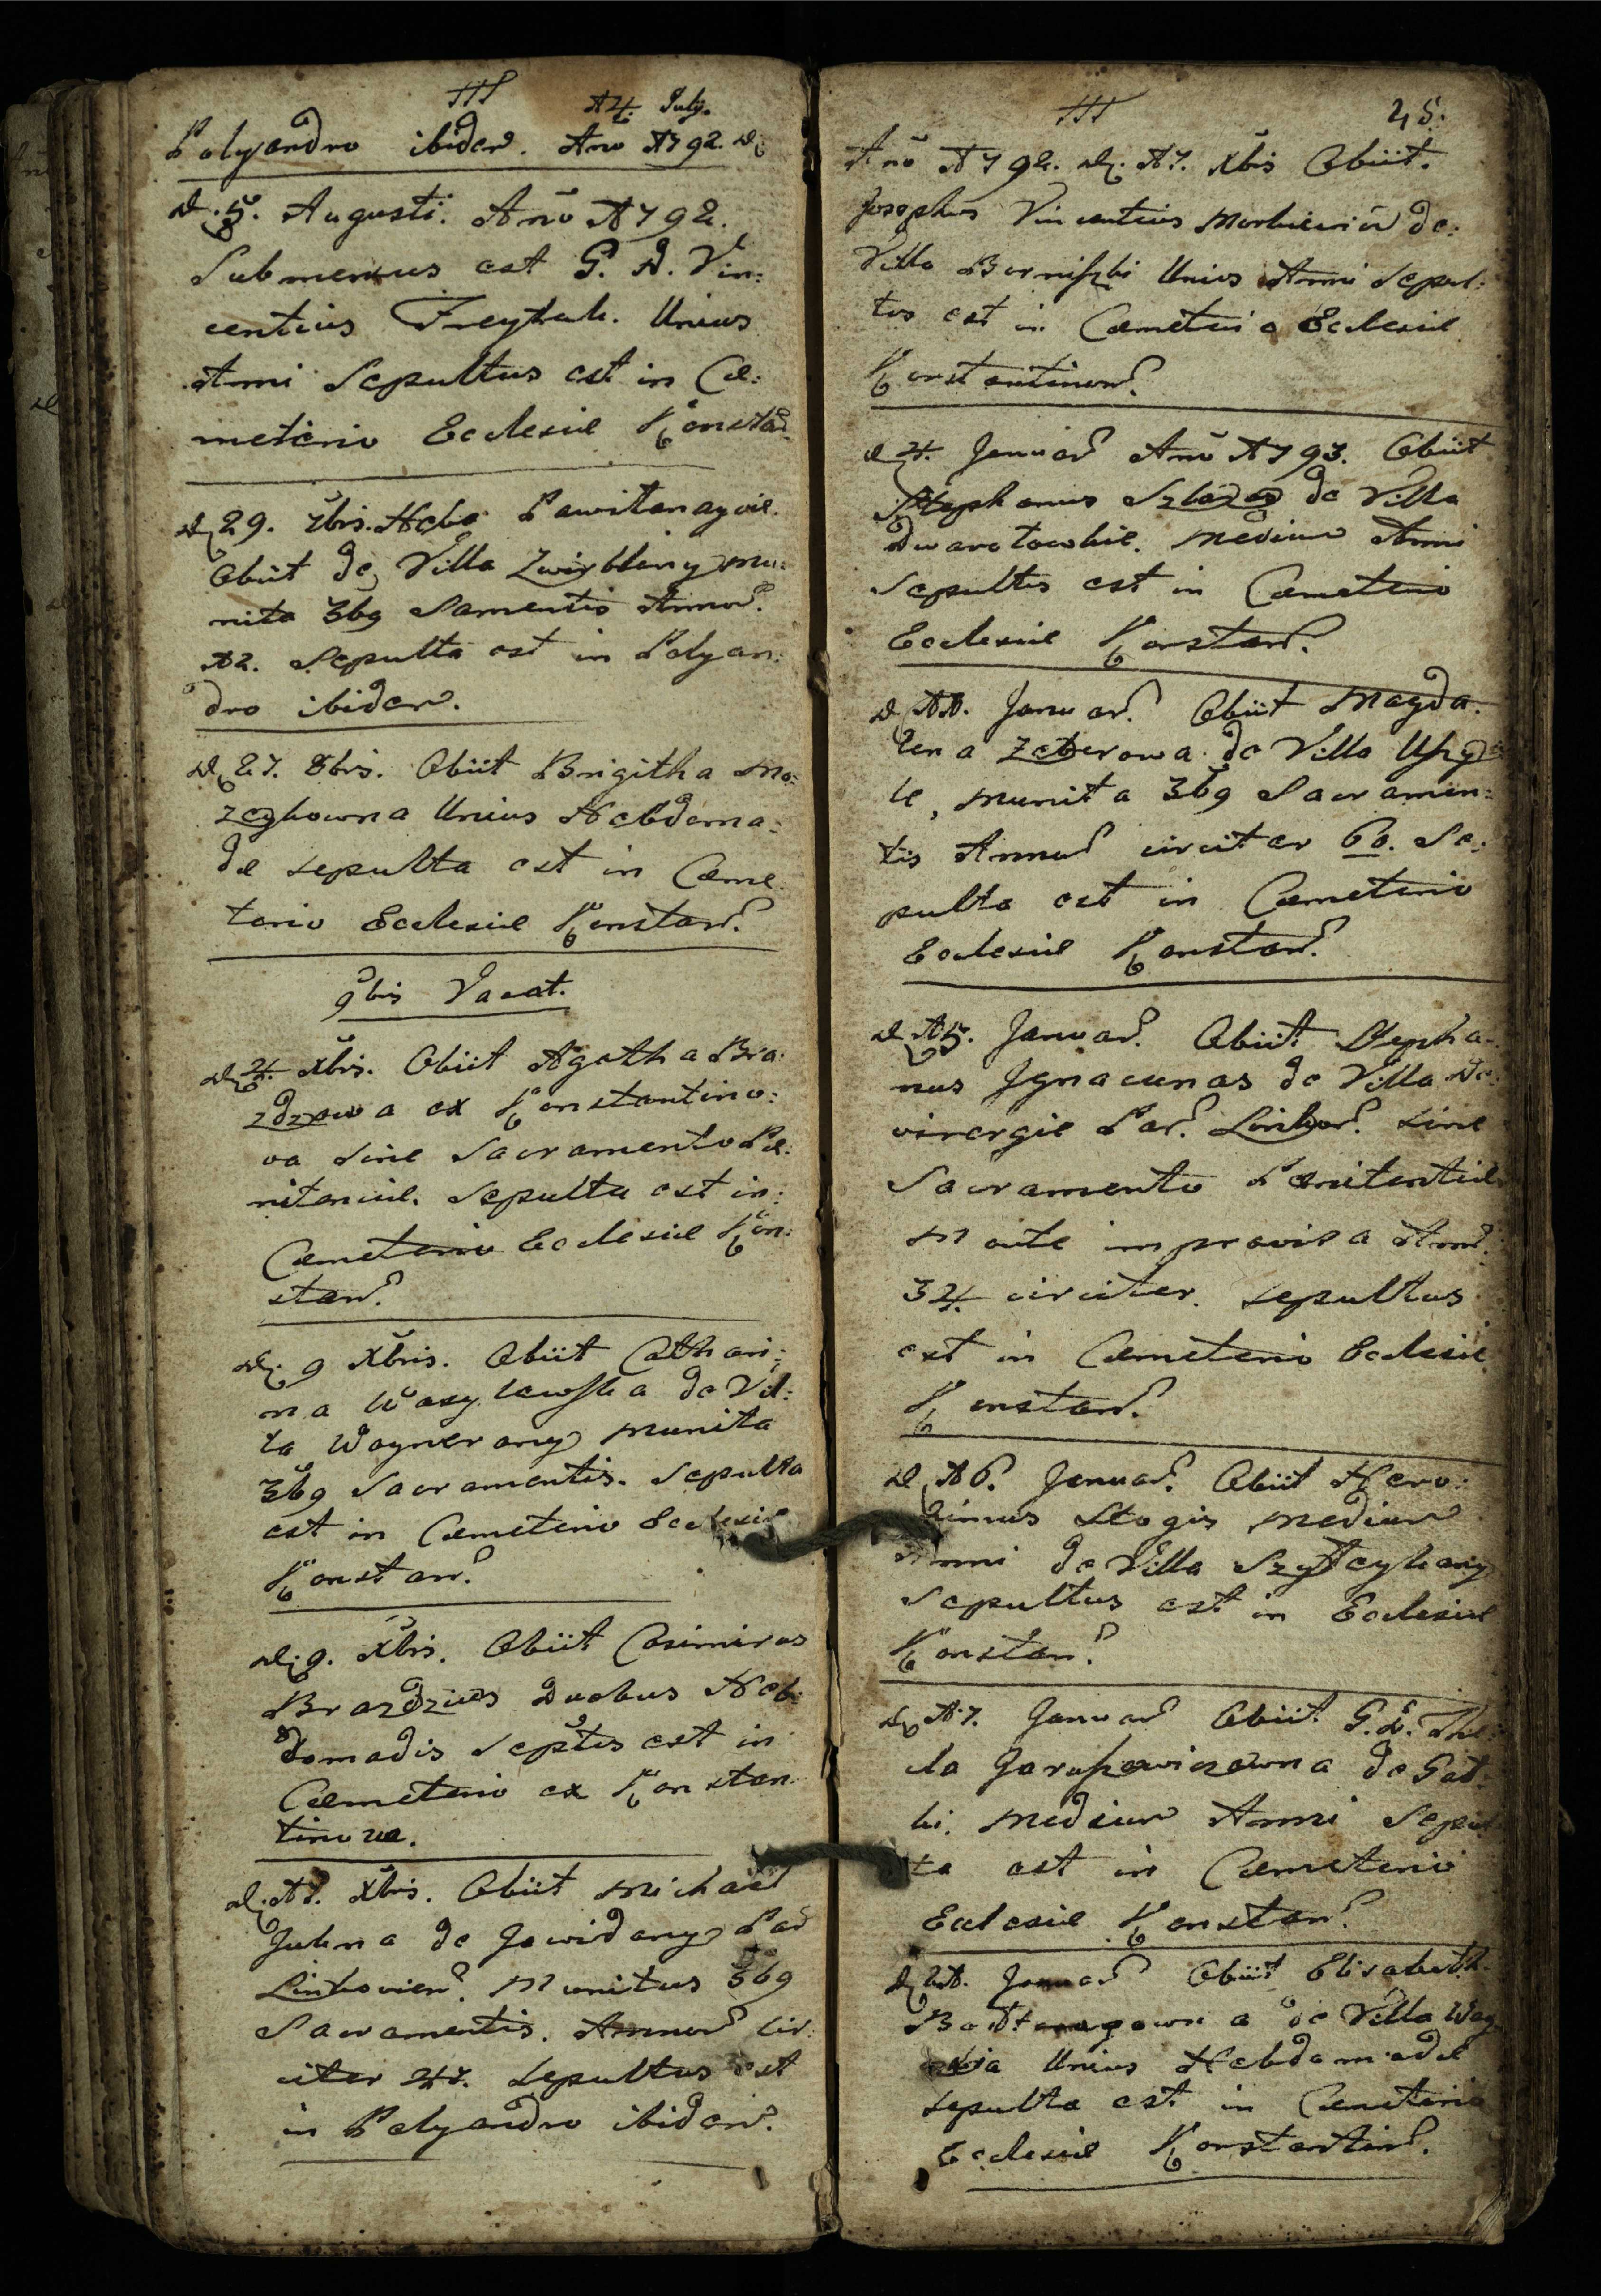 III
14. July.
Polyandro ibidem. Ano 1792. D:
D. 5. Augusti. Año 1792.
Submersus est G. D. Vin:
centius Freytak. Unius
Anni Sepultus est in Cæ:
meterio Ecclesiæ Konstan̄
D 29. 7bris. Heba
Obiit de Villa Zwirblany mu:
nita 3bg Samentis Annor̄.
12. Sepulta est in Polyan:
dro ibidem.
D 27. 8bris. Obiit Brigitha Mo:
zeykowna Unius Hebdoma:
dæ sepulta est in Cæme
terio Ecclesiæ Konstan̄.
9bris Vacat.
D 4. Xbris. Obiit Agatha Bra:
zdzowa ex Konstantino:
va sine Sacramento Pæ:
nitenciæ. Sepulta est in:
Cæmeterio Ecclesiæ Kon:
stan̄.
D. 9 Xbris. Obiit Cathari:
na Wasylewska de Vil:
la Waynorany munita
3bg Sacramentis. Sepulta
est in Cæmeterio Ecclesiæ
Konstan.
D. 9. Xbris. Obiit Casimirus
Brazdzius Duobus Heb:
domadis Septus est in
Cæmeterio ex Konstan
tinova.
D. 17. Xbris. Obiit Michaël
Jukna de Gowidany Par̄
Linkovien̄. Munitus 3bg
Sacramentis. Annor̄ cir:
citer 47. Sepultus est
in Polyandro ibidem.
III
45.
Año 1792. D. 17. Xbris Obiit.
Josephus Vincentius de:
Villa Unius Anni Sepul:
tus est in Cæmeterio Ecclesiæ
Konstantinov̄.
D 4. Januar̄ Año 1793. Obiit
Stephanus de Villa
Medium Anni
Sepultus est in Cæmeterio
Ecclesiæ Konstan̄.
D 11. Januar̄. Obiit Magda:
lena Zeberowa de Villa Uszy
le, Munita 3bg Sacramen:
tis Annor̄ circiter 60. Se:
pulta est in Cæmeterio
Ecclesiæ Konstan̄.
D 15. Januar̄. Obiit Stepha:
nus Ignacunas de Villa De:
virergie Par̄. Linkov̄. sine
Sacramento Pænitentiæ
Morte improvisa Ann̄.
34 circiter. Sepultus
est in Cæmeterio Ecclesiæ
Konstan̄.
D 16. Januar̄. Obiit Hiero:
nimus Stogis Medium
Anni de Villa
Sepultus est in Ecclesiæ
Konstan̄.
D 17. Januar̄ Obiit G. D. The:
cla Jaruszewiczowna de Gat:
ki. Medium Anni Sepul
ta est in Cæmeterio
Ecclesiæ Konstan̄.
D 21. Januar̄ Obiit Elisabeth
de Villa
Unius Hebdomadæ
sepulta est in Cæmeterio
Ecclesiæ Konstantin̄.